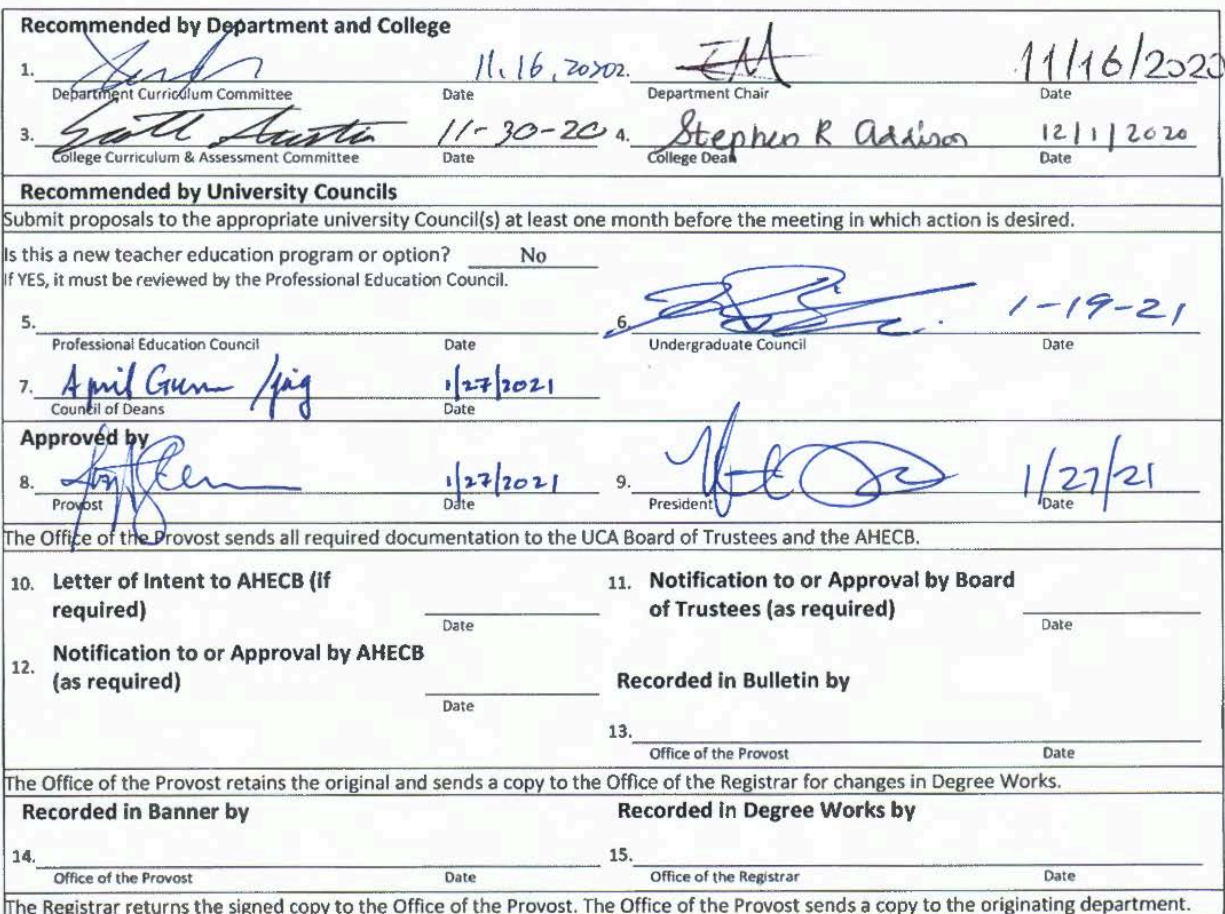 Recommended by Department and College
1. 11.16.2020 2. 11/16/2020
Department Curriculum Committee Date Department Chair Date
3. Scott Austin 11-30-20 4. Stephen R Addison 12/1/2020
College Curriculum & Assessment Committee Date College Dean Date
Recommended by University Councils
Submit proposals to the appropriate university Council(s) at least one month before the meeting in which action is desired.
Is this a new teacher education program or option? No
If YES, it must be reviewed by the Professional Education Council.
5. 6. 1-19-21
Professional Education Council Date Undergraduate Council Date
7. April Gunn /jag 1/27/2021
Council of Deans Date
Approved by
8. 1/27/2021 9. 1/27/21
Provost Date President Date
The Office of the Provost sends all required documentation to the UCA Board of Trustees and the AHECB.
10. Letter of Intent to AHECB (if 11. Notification to or Approval by Board
required) of Trustees (as required)
Date Date
12. Notification to or Approval by AHECB
(as required) Recorded in Bulletin by
Date
13.
Office of the Provost Date
The Office of the Provost retains the original and sends a copy to the Office of the Registrar for changes in Degree Works.
Recorded in Banner by Recorded in Degree Works by
14. 15.
Office of the Provost Date Office of the Registrar Date
The Registrar returns the signed copy to the Office of the Provost. The Office of the Provost sends a copy to the originating department.